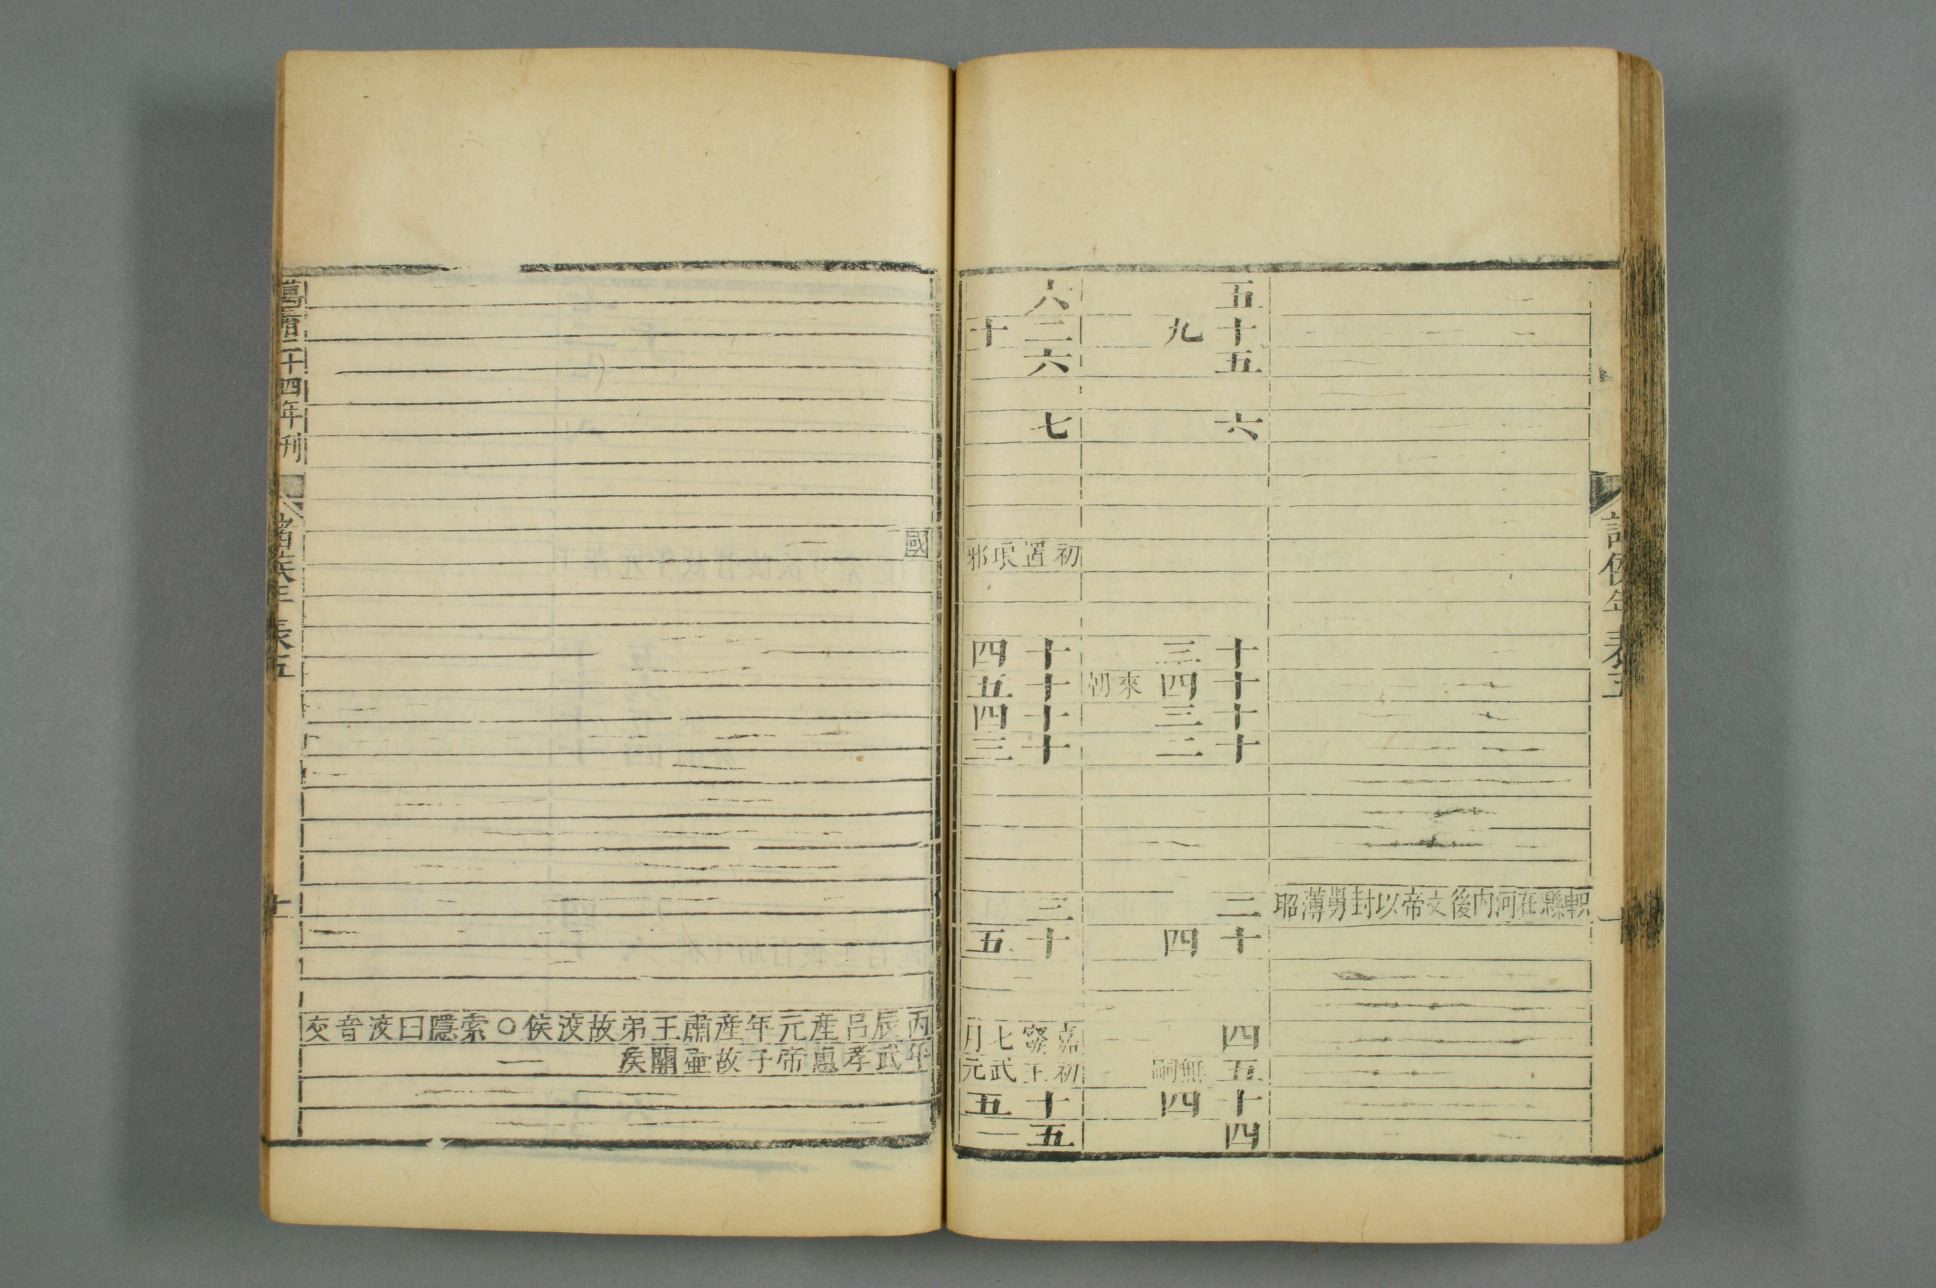 諸侯年表五
軹縣在河內後文帝以封舅薄昭
五
十九
五
六
十三
十四來朝
十三
十二
二
十四
四
五無嗣
十四
四
六
二十
六
七
初置琅邪國
十四
十五
十四
十三
三
十五
嘉 七月丙辰呂產元年產肅王弟故洨侯○索隱曰洨音交
初王武元年武孝惠帝子故壺關侯
十五
五
萬曆二十四年刊
諸侯年表五
十一